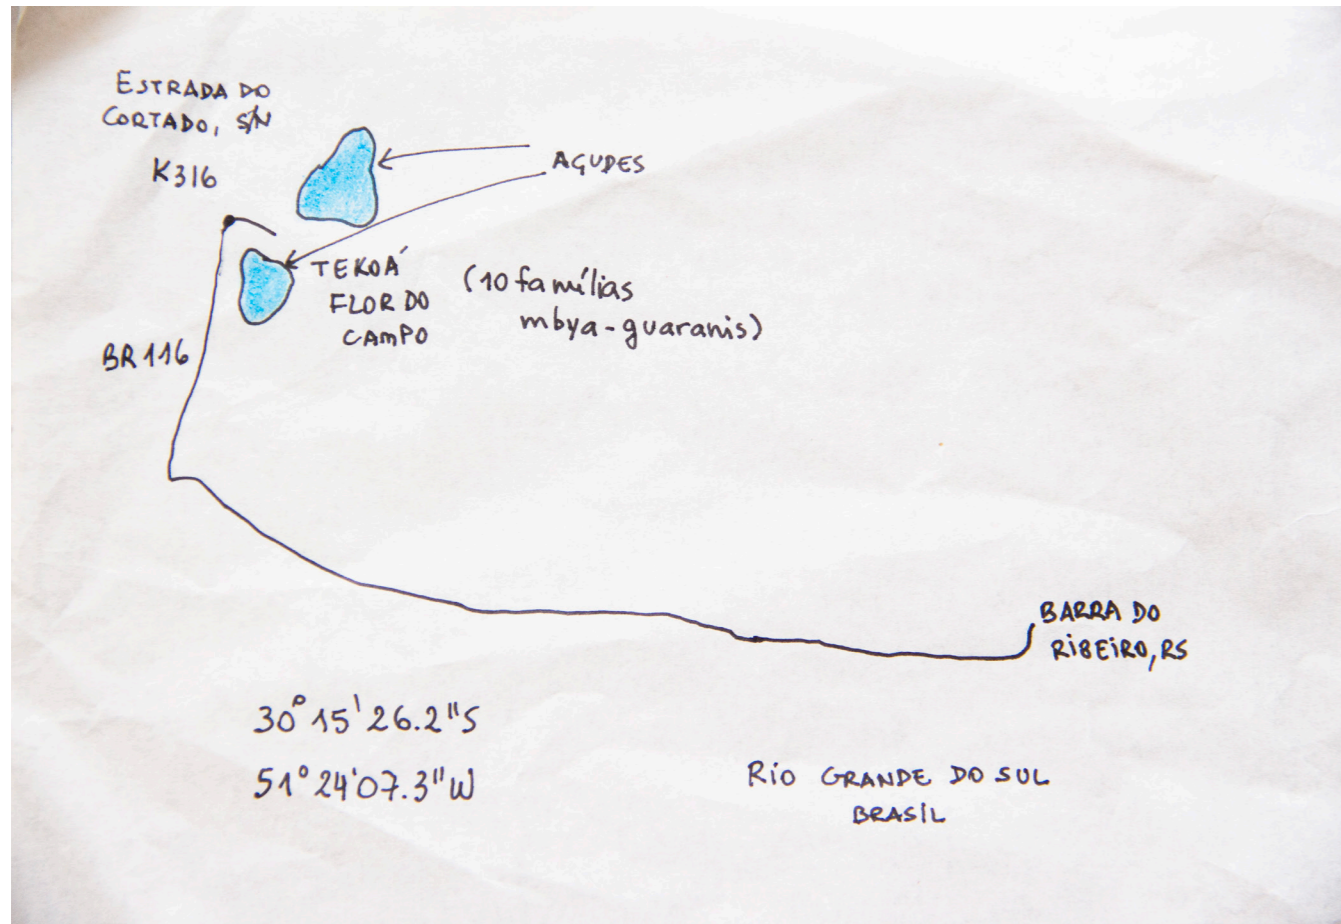 ESTRADA DO
CORTADO, S/N
K316
AÇUDES
TEKOÁ
FLOR DO
CAMPO
(10 famílias
mbya-guaranis)
BR 116
BARRA DO
RIBEIRO, RS
30° 15' 26.2" S
51° 24' 07.3" W
RIO GRANDE DO SUL
BRASIL